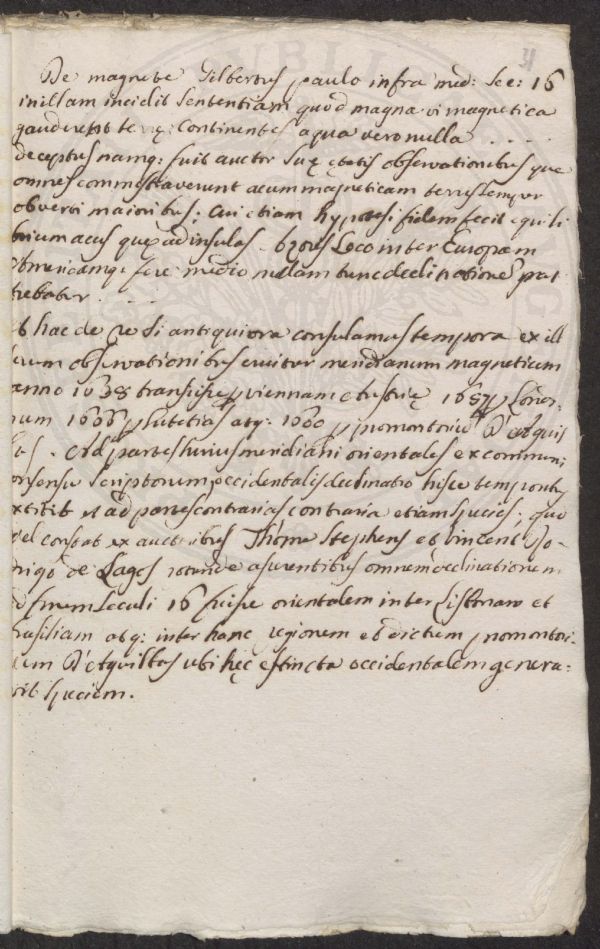 De magnete Gilbertus paulo infra med: Sec: 16
in illam incidit Sententiam quòd magna vi magnetica
gauderent terrę: Continentes aqua vero nulla . . . .
deceptus namq: fuit auctor Suę ętatis observationibus que
omnes commonstraverunt acum magneticam terris semper
obverti maioribus: Cui etiam hypotesi fidem fecit equili
brium acus que ad insulas Loco inter Europam
Americamq: fere medio nullam tunc declinatione pat
iebatur . . . .
Et hac de re Si antiquiora consulamus tempora ex ill
orum observationibus eruitur meridianum magneticum
anno 1638 transisse p viennam Austrię 1657 p Londi-
num 1666 p Lutetias atq: 1600 p promontoriū D'Aquil
las. Ad partes huius meridiani orientales ex communi
consensu Scriptorum occidentalis declinatio hisce temporibus
extitit et ad partes contrarias contraria etiam Species; quo
vel constat ex auctoribus Thoma Stephens et Vincent Ro-
rigo de Lagos rotunde asserentibus omnem declinationem
ad finem Seculi 16 fuisse orientalem inter et
Brasiliam atq: inter hanc regionem et dictum promontori
um D'Aquillas ubi hęc extincta occidentalem genera:
vit Speciem.